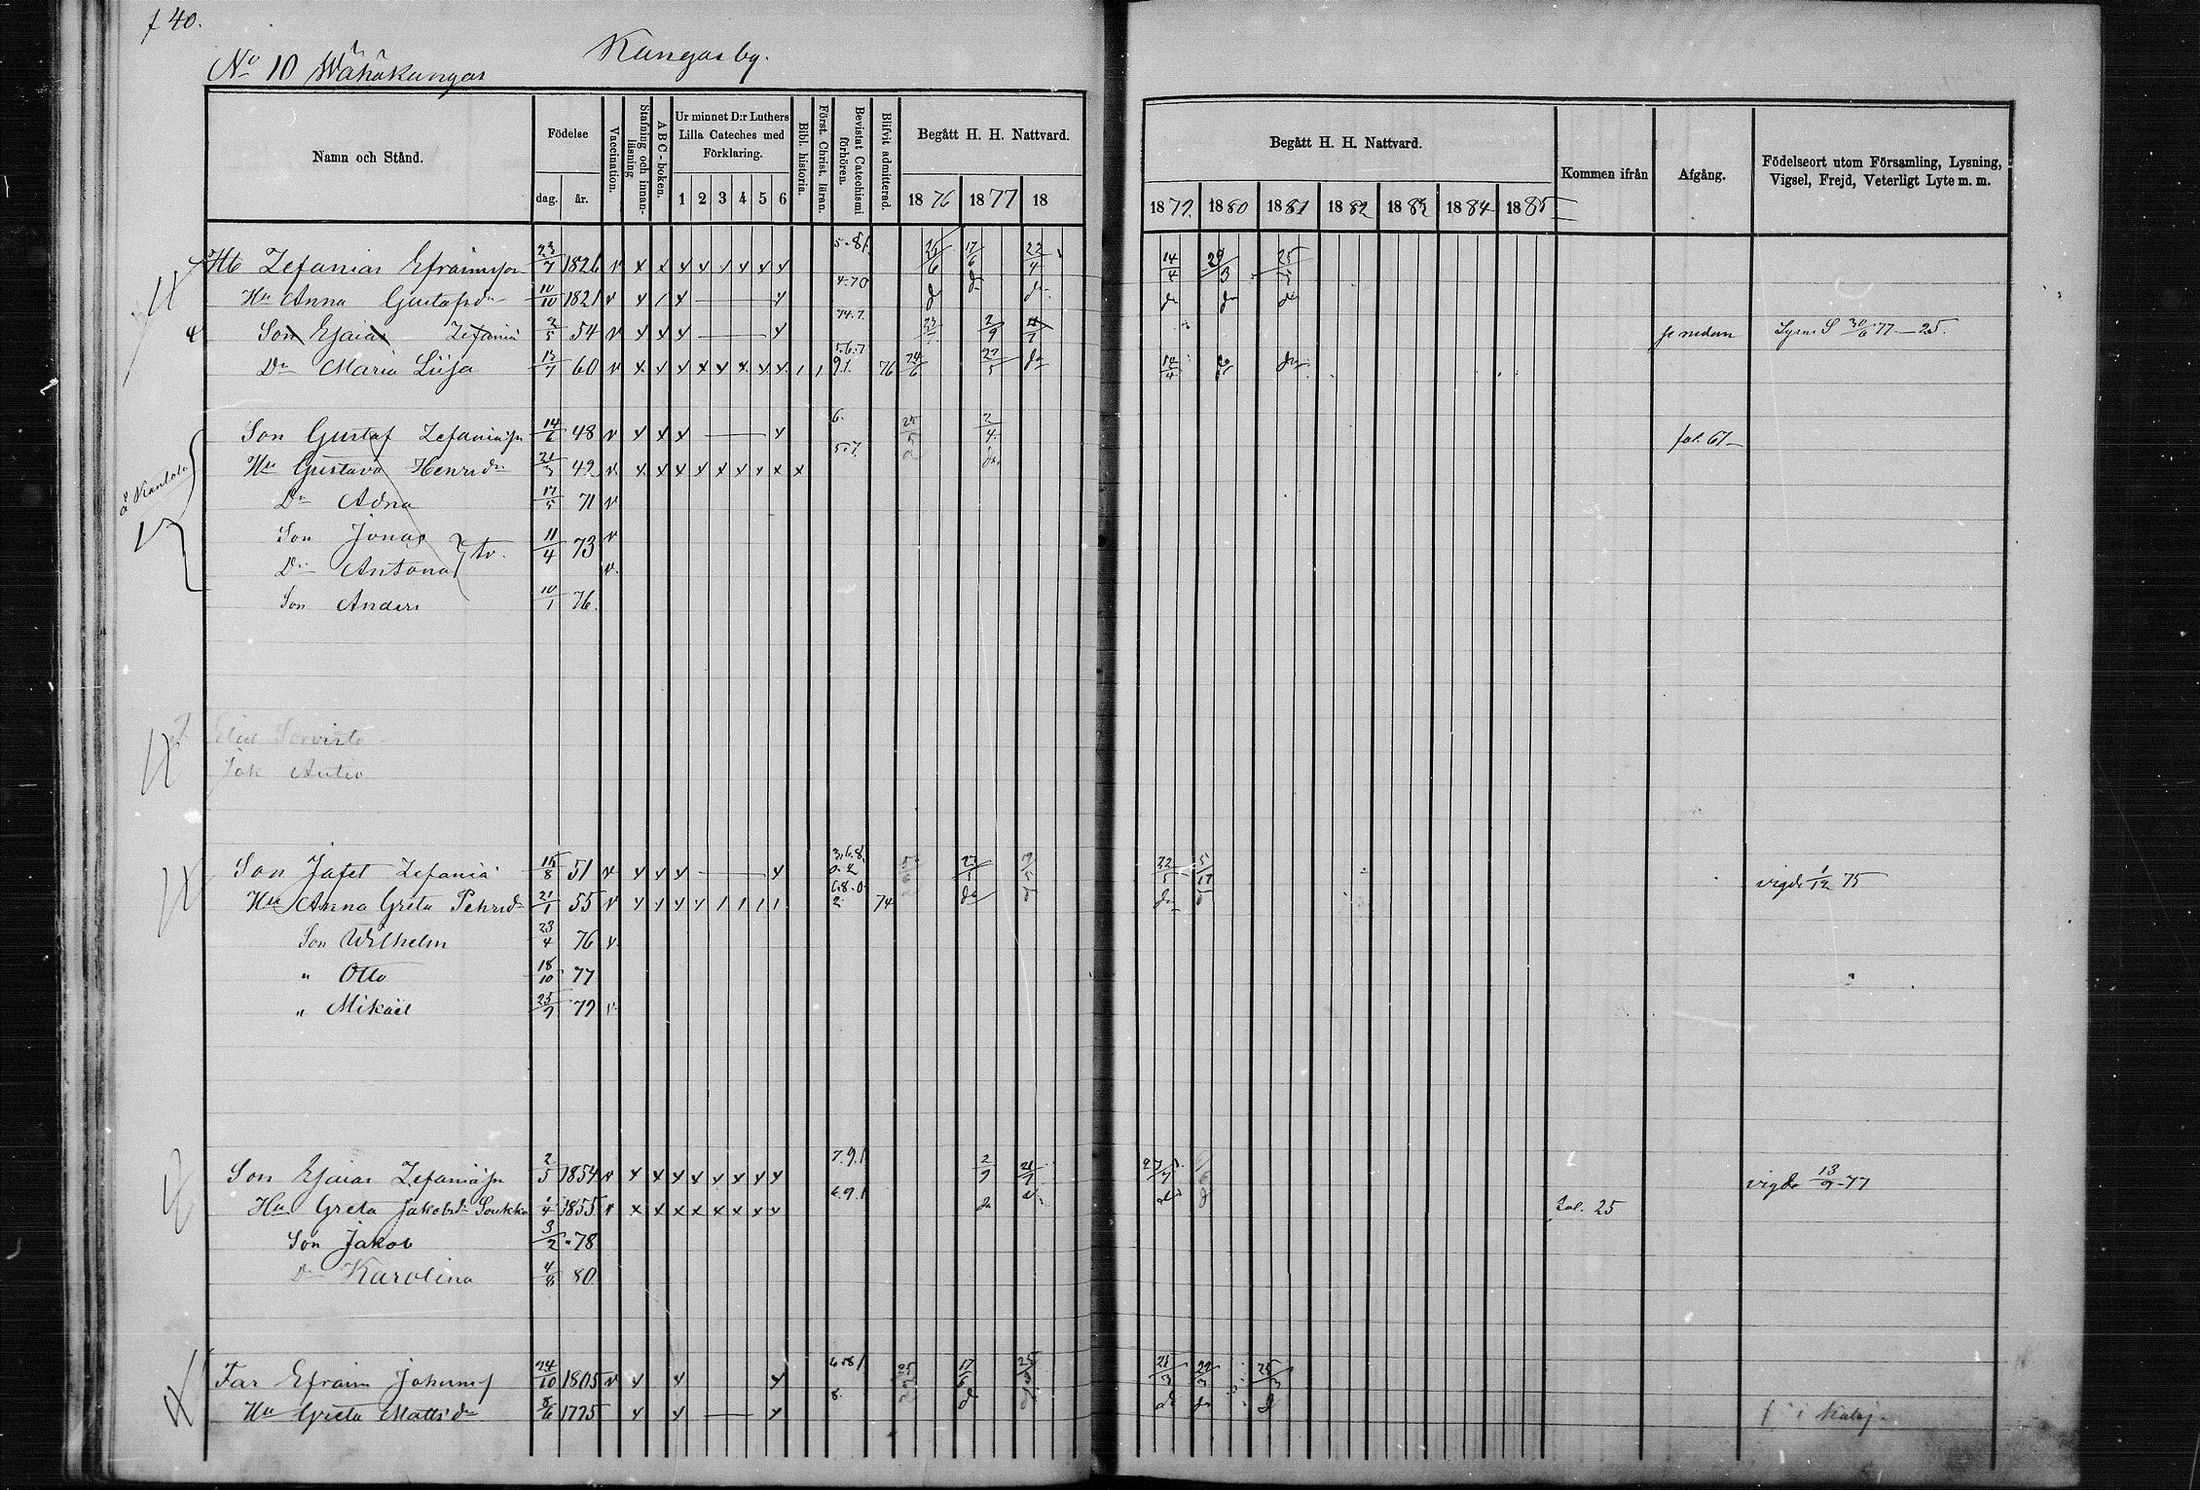 f 40.
Kangas by.
No 10 Wähäkangas
Namn och Stånd.
Födelse
dag. år.
Vaccination.
Stafning och innanläsning
A B C-boken.
Ur minnet D:r Luthers Lilla Cateches med Förklaring.
1 2 3 4 5 6
Bibl. historia.
Först. Christ. läran.
Bevistat Catechismi förhören.
Blifvit admitterad.
Begått H. H. Nattvard.
1876 1877 18
Begått H. H. Nattvard.
1879. 1880 1881 1882 1883 1884 1885
Kommen ifrån
Afgång.
Födelseort utom Församling, Lysning, Vigsel, Frejd, Veterligt Lyte m. m.
Zefanias Efraimsson 23/7 1826 v x x x x x x x 5-81. 17/6 22/4 14/4 29/3 25/5
Hu Anna Gustafsdr 10/10 1821 v x / x — x 4-70 d do do do do
Son Esaias Zefaniä 2/5 54 v x x x — x 74.7. 2/9 se nedan Lysn. S 30/6 77 — 25.
Dr Maria Liisa 13/7 60 v x x x x x x x x / / 5.6.7 9.1. 76 24/6 27/5 do 14/4 do
Son Gustaf Zefaniäsn 14/6 48 v x x x — x 6. 25/5 2/4 fol. 67
Hu Gustava Henrsdr 21/3 49 v x x x x x x x x x 5.7. do.
å Kantola
Dr Adna 17/5 71 v
Son Jonas 11/4 73 v
Dr Antona } tv. v.
Son Anders 10/1 76.
Jak Antio
Son Jafet Zefaniä 15/8 51 v x x x — x 3.6.8. 22/5 5/17 vigde 1/12 75
Hu Anna Greta Pehrsdr 21/1 55 v x x x x / / / / 6.8.0 2 74 do do
Son Wilhelm 23/4 76 v.
" Otto 18/10 77
" Mikäel 25/9 79 v.
Son Esaias Zefaniäsn 2/5 1854 v x x x x x x x x 7.9.1 2/9 21/7 vigde 13/9 - 77
Hu Greta Jakobsdr Soukka 1/4 1855 v x x x x x x x x 6.9.1 do fol. 25
Son Jakob 3/2 - 78
Dr Karolina 4/8 80
Far Efraim Johanss 24/10 1805 v x x x 25 17/6 25 21/3 22/3 25/3
Hu Greta Mattsdr 8/6 1795 x x — x 8. d do do d f i Kalaj.